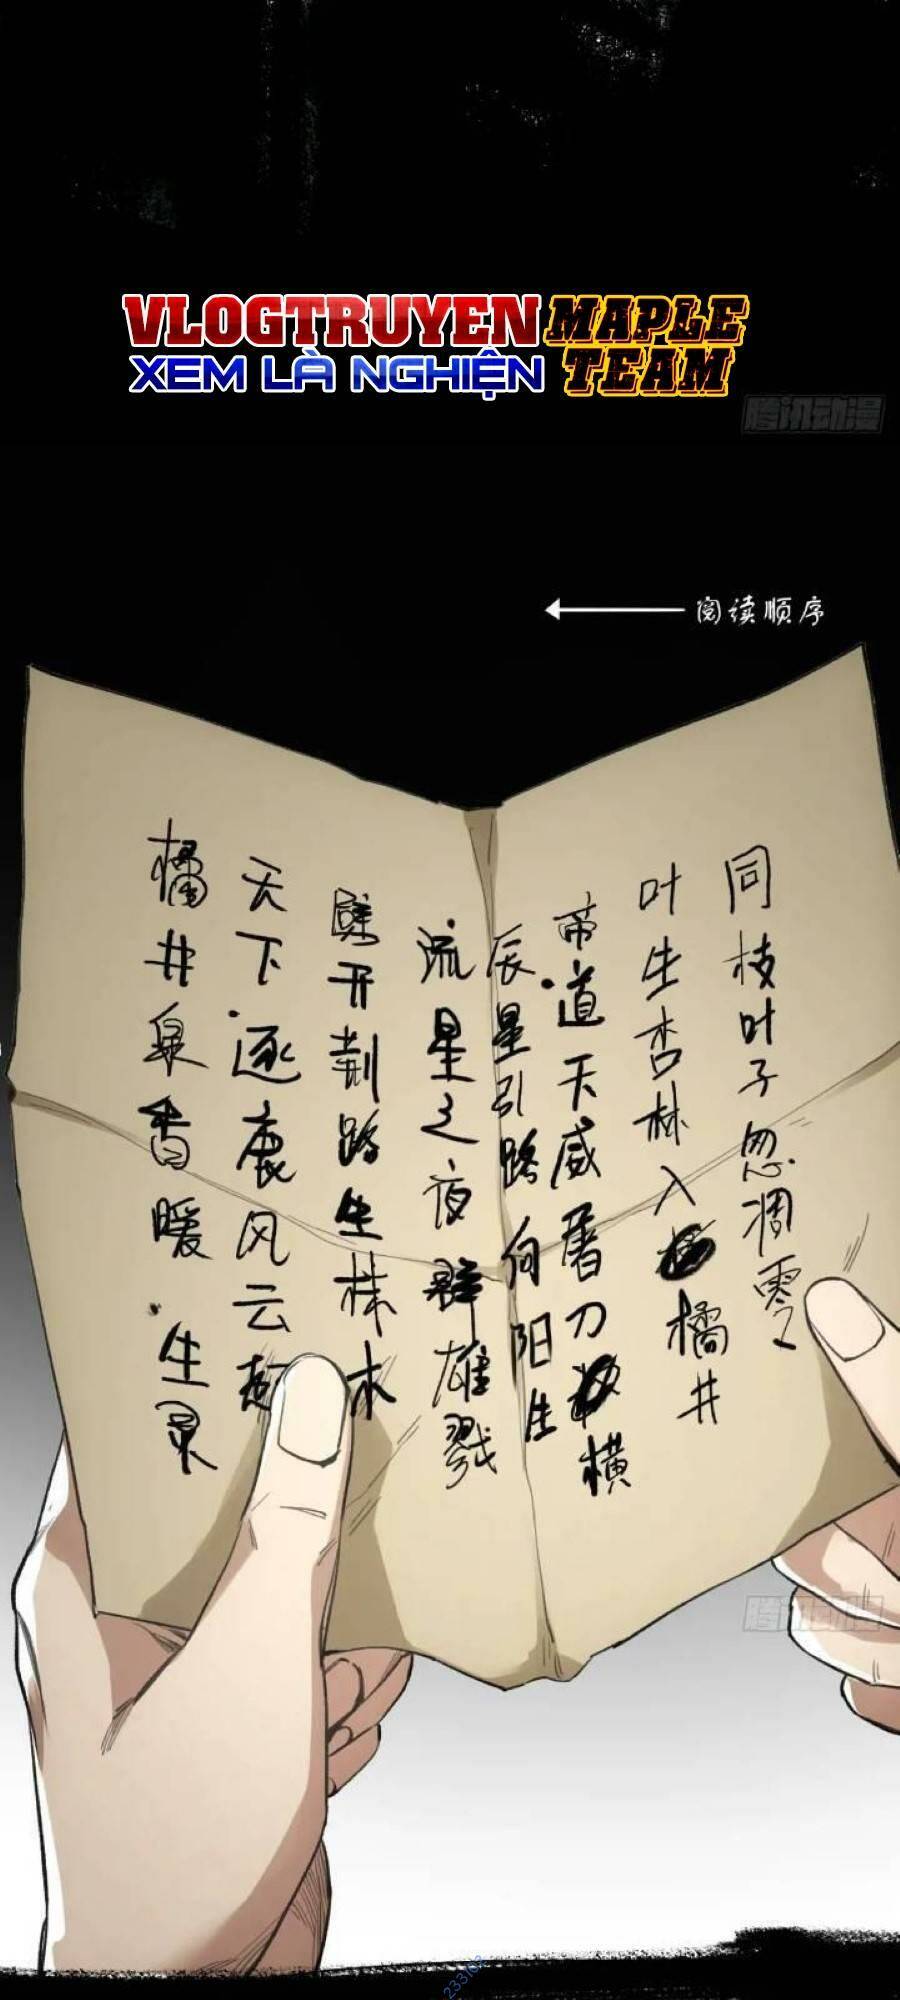 VLOGTRUYEN MAPLE
XEM LÀ NGHIỆN TEAM
腾讯动漫
阅读顺序
同枝叶子忽凋零
叶生杏林入橘井
帝道天威屠刀横
辰星引路向阳生
流星之夜群雄戮
劈开荆路生株木
天下逐鹿风云起
橘井泉香暖生灵
腾讯动漫
233102